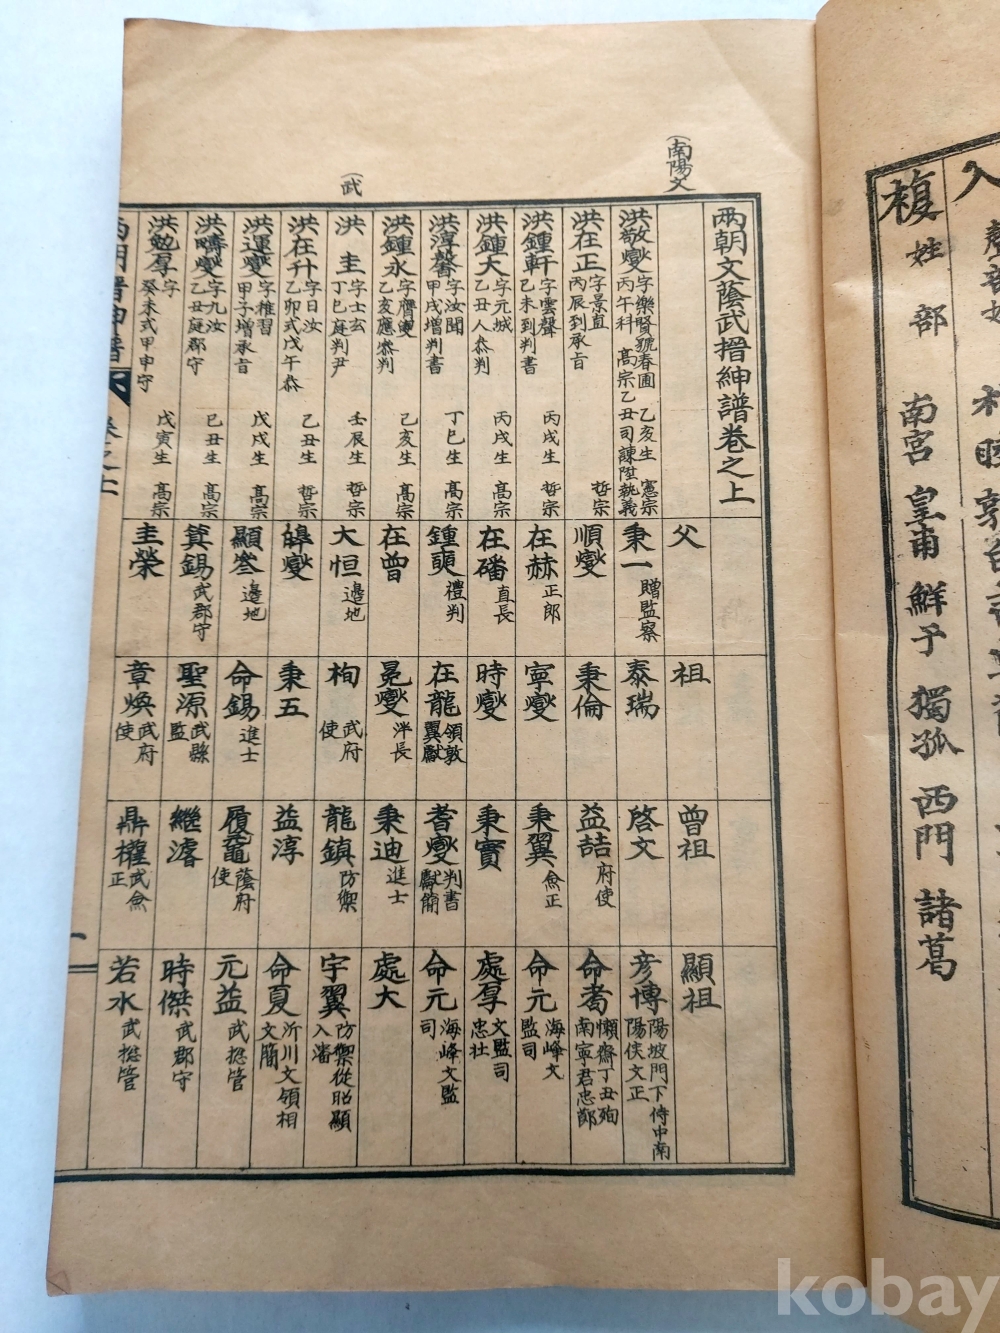 (南陽文
(武
兩朝文蔭武搢紳譜卷之上
父
祖
曾祖
顯祖
洪敬燮 字樂賢號春圃 乙亥生 憲宗
丙午科 高宗乙丑司諫陞執義
秉一 贈監察
泰瑞
啓文
彦博 陽坡門下侍中南
陽侯文正
洪在正 字景直
丙辰到承旨 哲宗
順燮
秉倫
益喆 府使
命耉 懶齋丁丑殉
南寧君忠節
洪鍾軒 字雲聲
己未到判書 丙戌生 哲宗
在赫 正郎
寧燮
秉翼 僉正
命元 海峰文
監司
洪鍾大 字元城
乙丑人叅判 丙戌生 高宗
在磻 直長
時燮
秉實
處厚 文監司
忠社
洪淳馨 字汝聞
甲戌增判書 丁巳生 高宗
鍾奭 禮判
在龍 領敦
翼獻
耆燮 判書
獻簡
命元 海峰文監
司
洪鍾永
乙亥應叅判 乙亥生 高宗
在曾
冕燮 泮長
秉迪 進士
處大
洪圭 字士玄
丁巳庭判尹 壬辰生 哲宗
大恒 邊地
栒 武府
使
龍鎮 防禦
宇翼 防禦從昭顯
入瀋
洪在升 字日汝
乙卯式戊午叅 乙丑生 哲宗
皞燮
秉五
益淳
命夏 沂川文領相
文簡
洪運燮 字稚習
甲子增承旨 戊戌生 高宗
顯叅 邊地
命錫 進士
履竉 蔭府
使
元益 武摠管
洪疇燮 字九汝
乙丑庭郡守 己丑生 高宗
箕錫 武郡守
聖源 武縣
監
繼濬
時傑 武郡守
洪勉厚 字
癸未式甲申守 戊寅生 高宗
圭榮
章煥 武府
使
鼎權 武僉
正
若水 武摠管
兩朝搢紳譜 卷之上 一
複姓部 南宮 皇甫 鮮于 獨孤 西門 諸葛
kobay